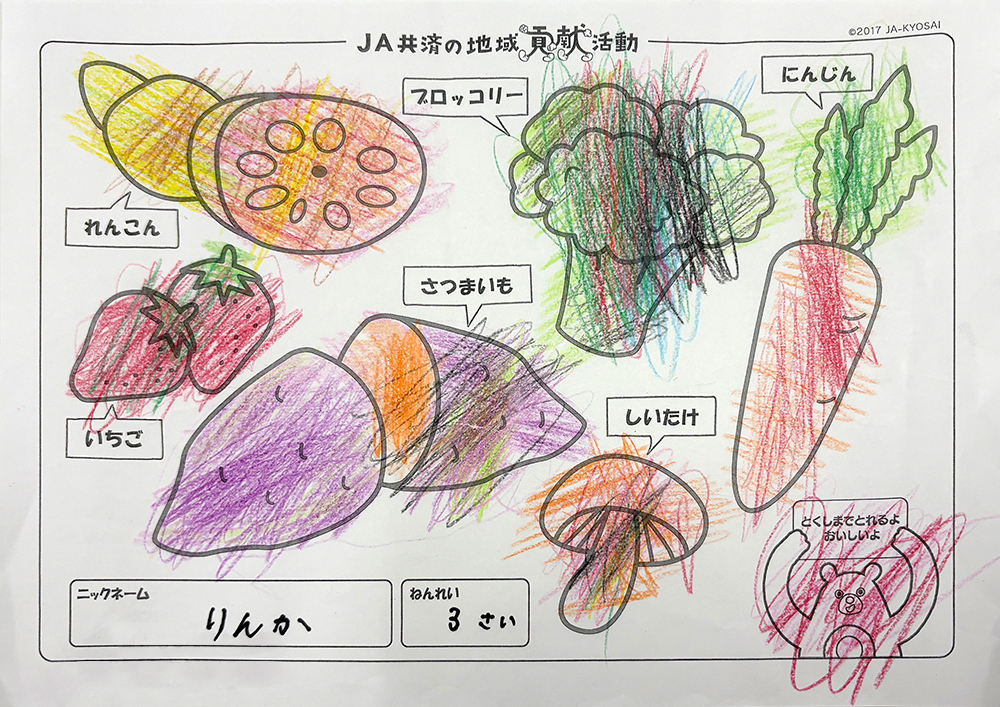 ©2017 JA-KYOSAI
JA共済の地域貢献活動
ブロッコリー
にんじん
れんこん
さつまいも
いちご
しいたけ
とくしまでとれるよ
おいしいよ
ニックネーム
りんか
ねんれい
3さい